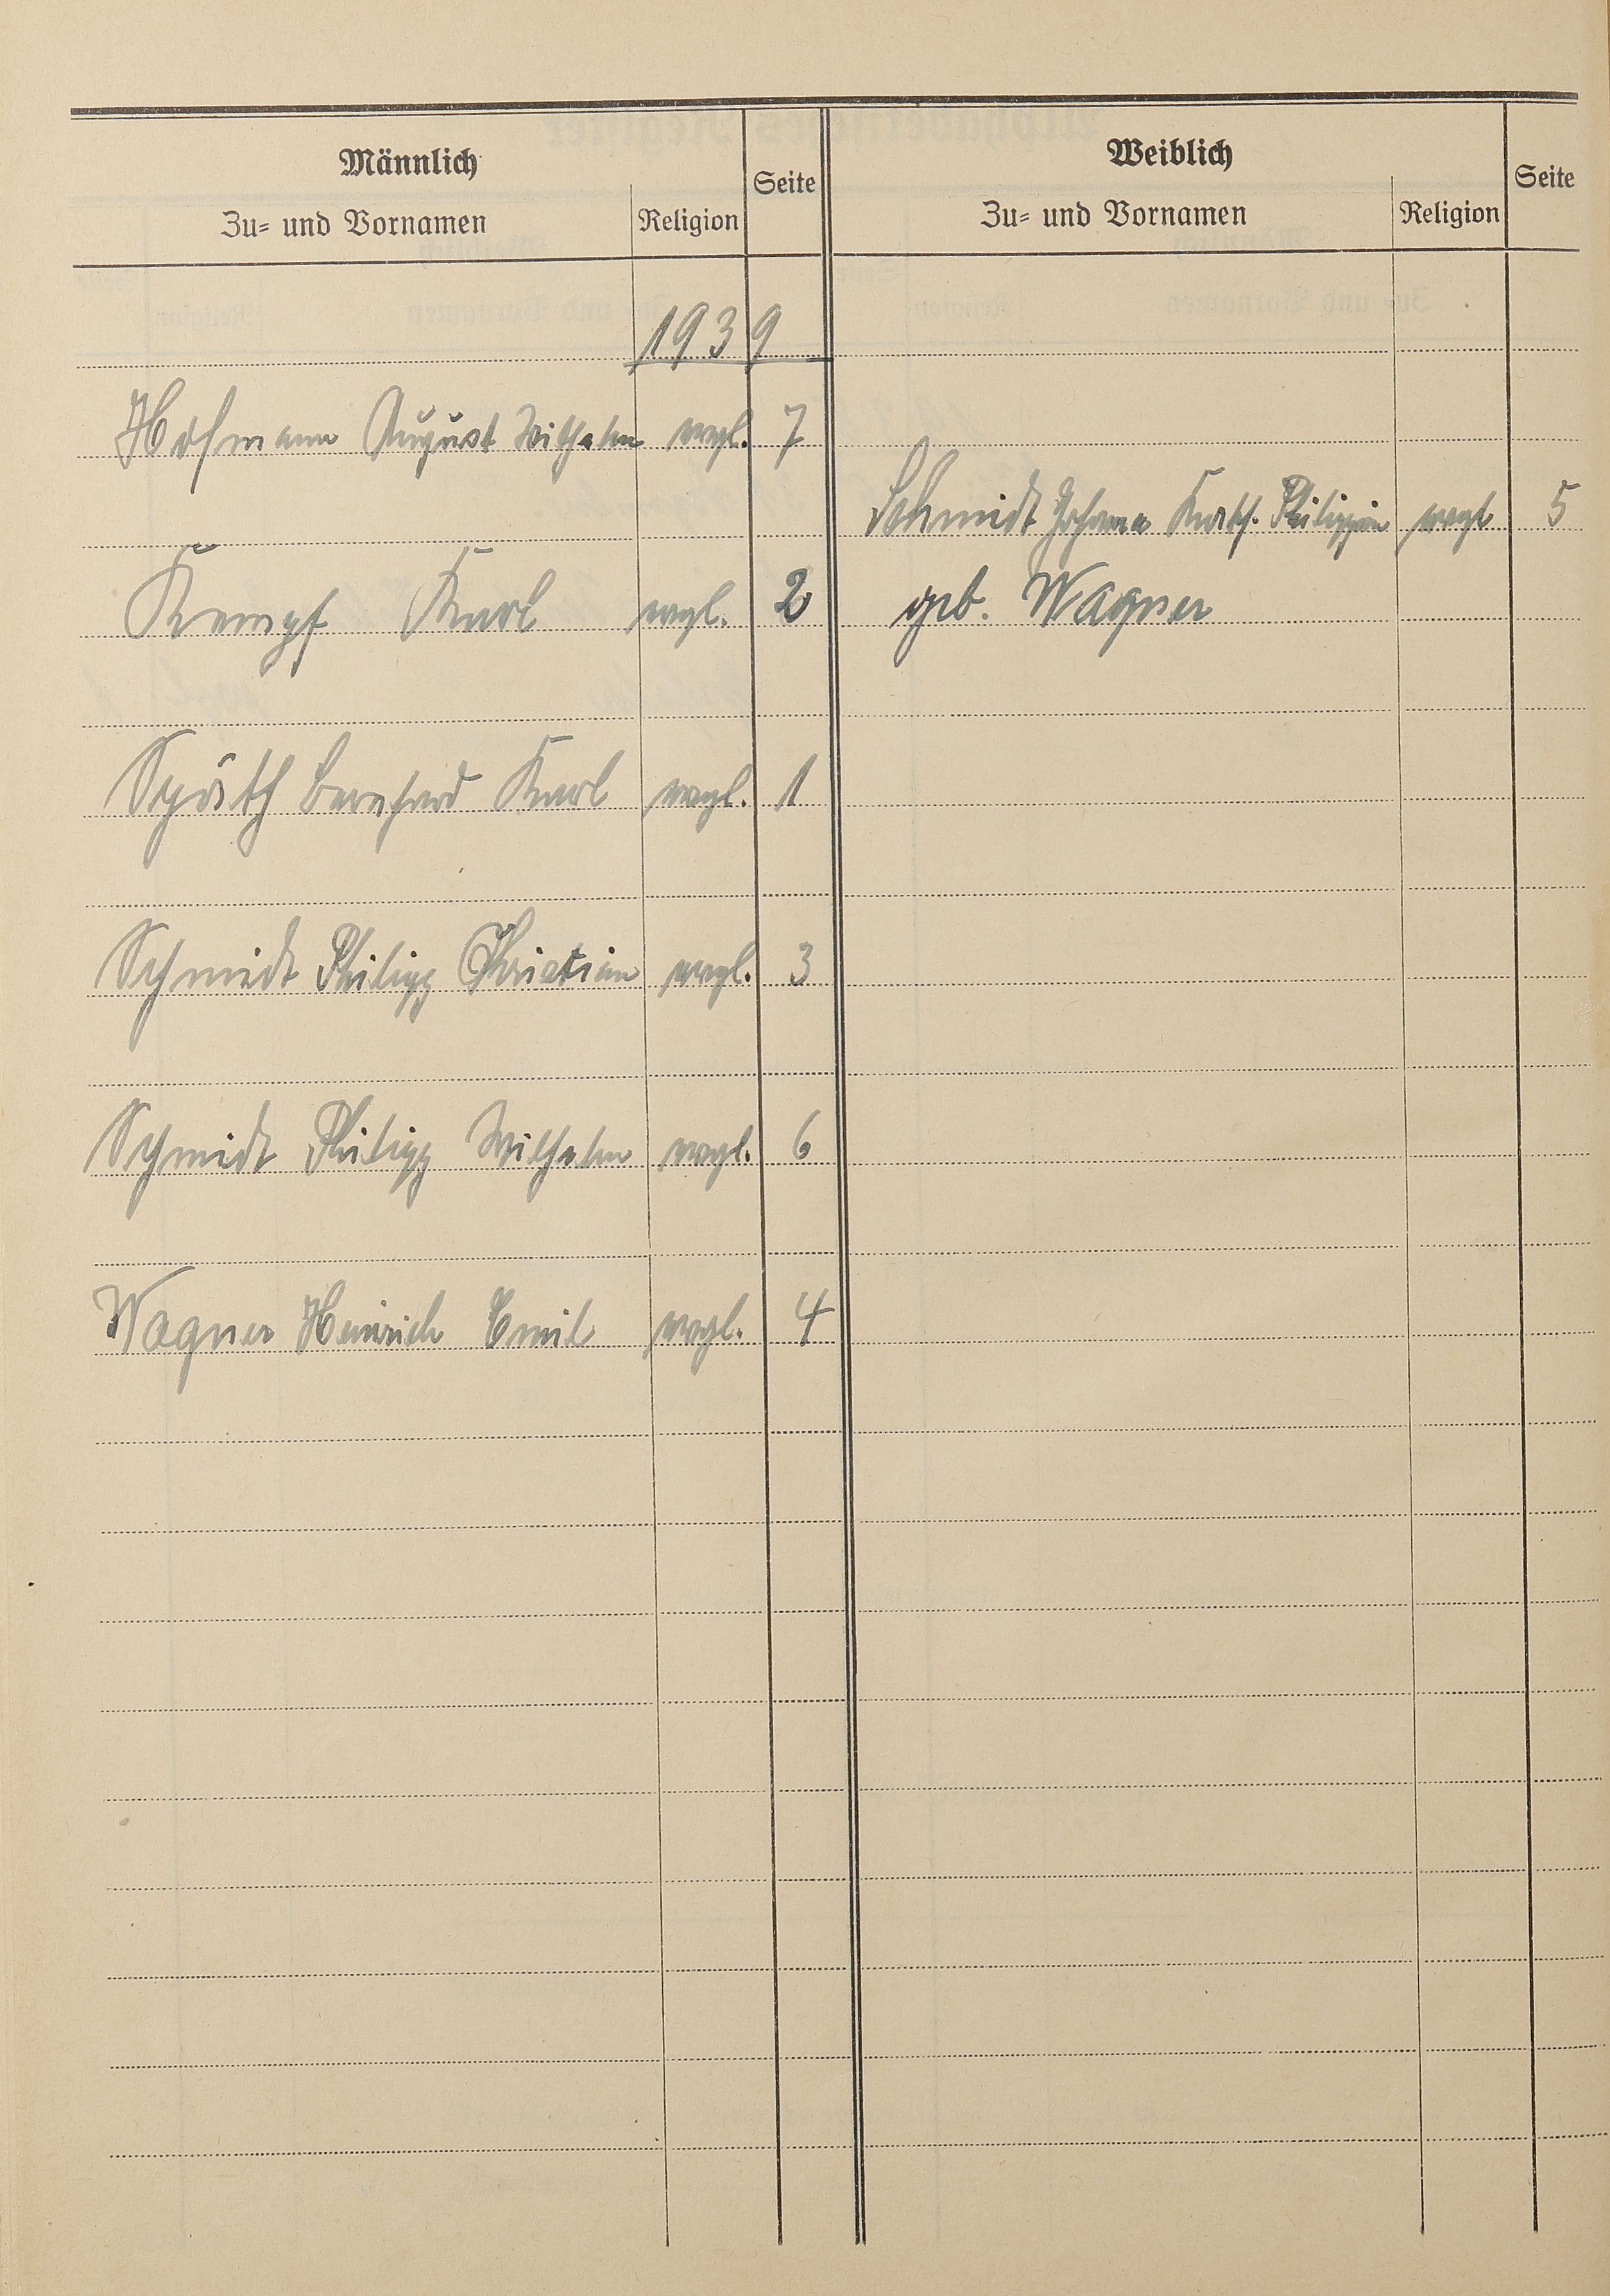 Männlich
Zu- und Vornamen Religion Seite
Weiblich
Zu- und Vornamen Religion Seite
1939
Hofmann August Wilhelm evgl. 7
Schmidt Johanna Kath. Philippine evgl. 5
Kempf Karl evgl. 2
geb. Wagner
Späth Bernhard Karl evgl. 1
Schmidt Philipp Christian evgl. 3
Schmidt Philipp Wilhelm evgl. 6
Wagner Heinrich Emil evgl. 4